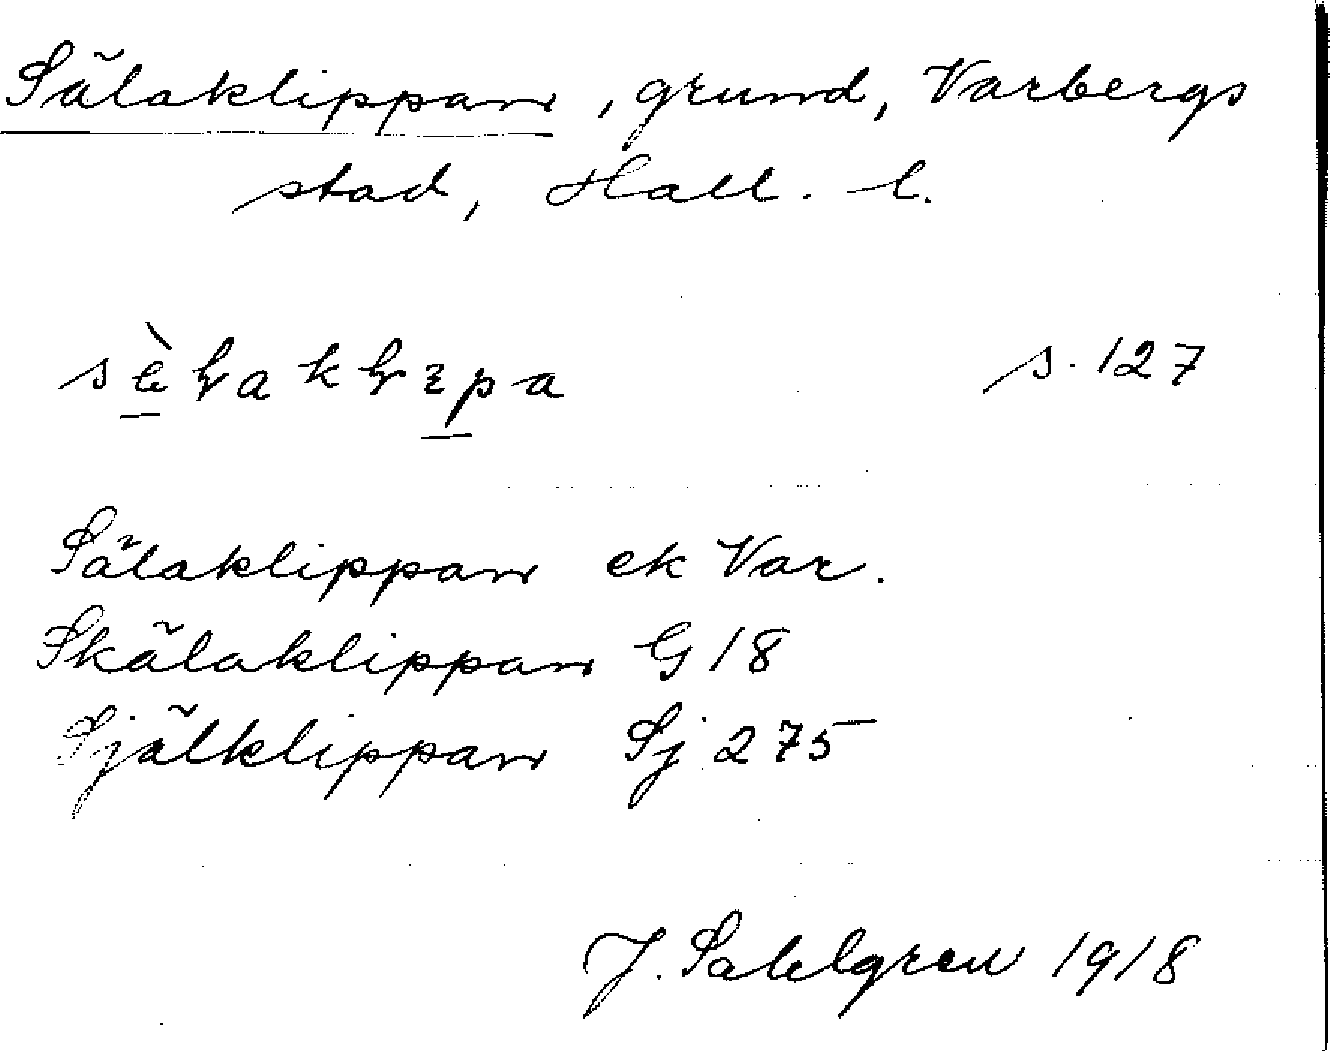 Sälaklippan, grund, Varbergs
stad, Hall. l.
s. 127
Sälaklippan ek Var.
Skälaklippan G 18
Själklippan Sj 275
J. Sahlgren 1918